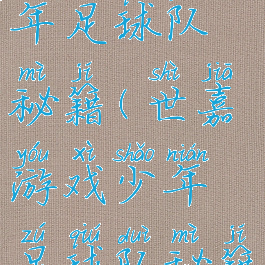 年足球队
mì jí shì jiā
秘籍(世嘉
yóu xì shǎo nián
游戏少年
zú qiú duì mì jí
足球队秘籍